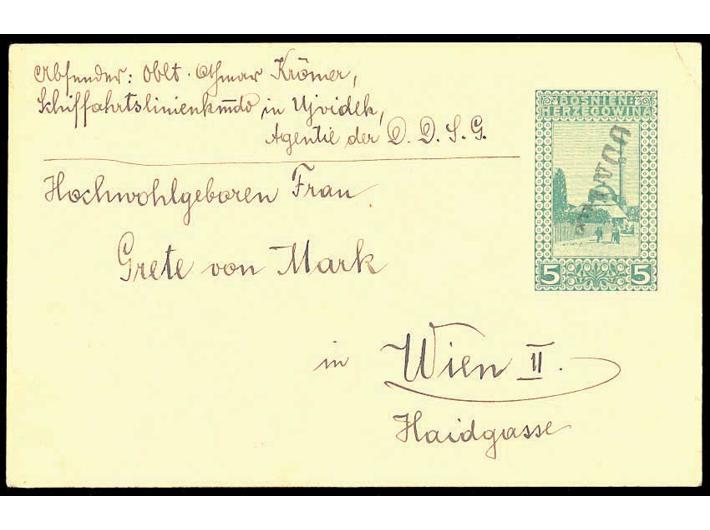 Absender: Oblt. Othmar Krömer,
Schiffahrtslinienkmdo in Ujvidek,
Agentie der D. D. S. G.
BOSNIEN-
HERZEGOWINA
Hochwohlgeboren Frau
Grete von Mark
5 5
in Wien II.
Haidgasse